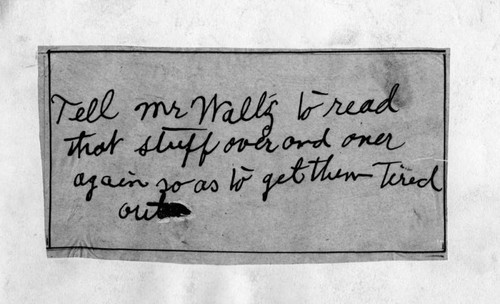 Tell Mr Waltz to read
that stuff over and over
again so as to get them Tired
out